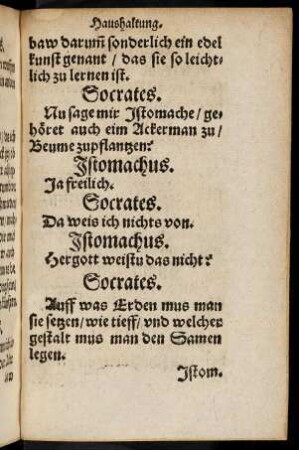 Haushaltung.
baw darum̃ sonderlich ein edel
kunst genant / das sie so leicht-
lich zu lernen ist.
Socrates.
Nu sage mir Jstomache / ge-
höret auch eim Ackerman zu /
Beume zupflantzen?
Jstomachus.
Ja freilich.
Socrates.
Da weis ich nichts von.
Jstomachus.
Hergott weistu das nicht?
Socrates.
Auff was Erden mus man
sie setzen / wie tieff / vnd welcher
gestalt mus man den Samen
legen.
Jstom.